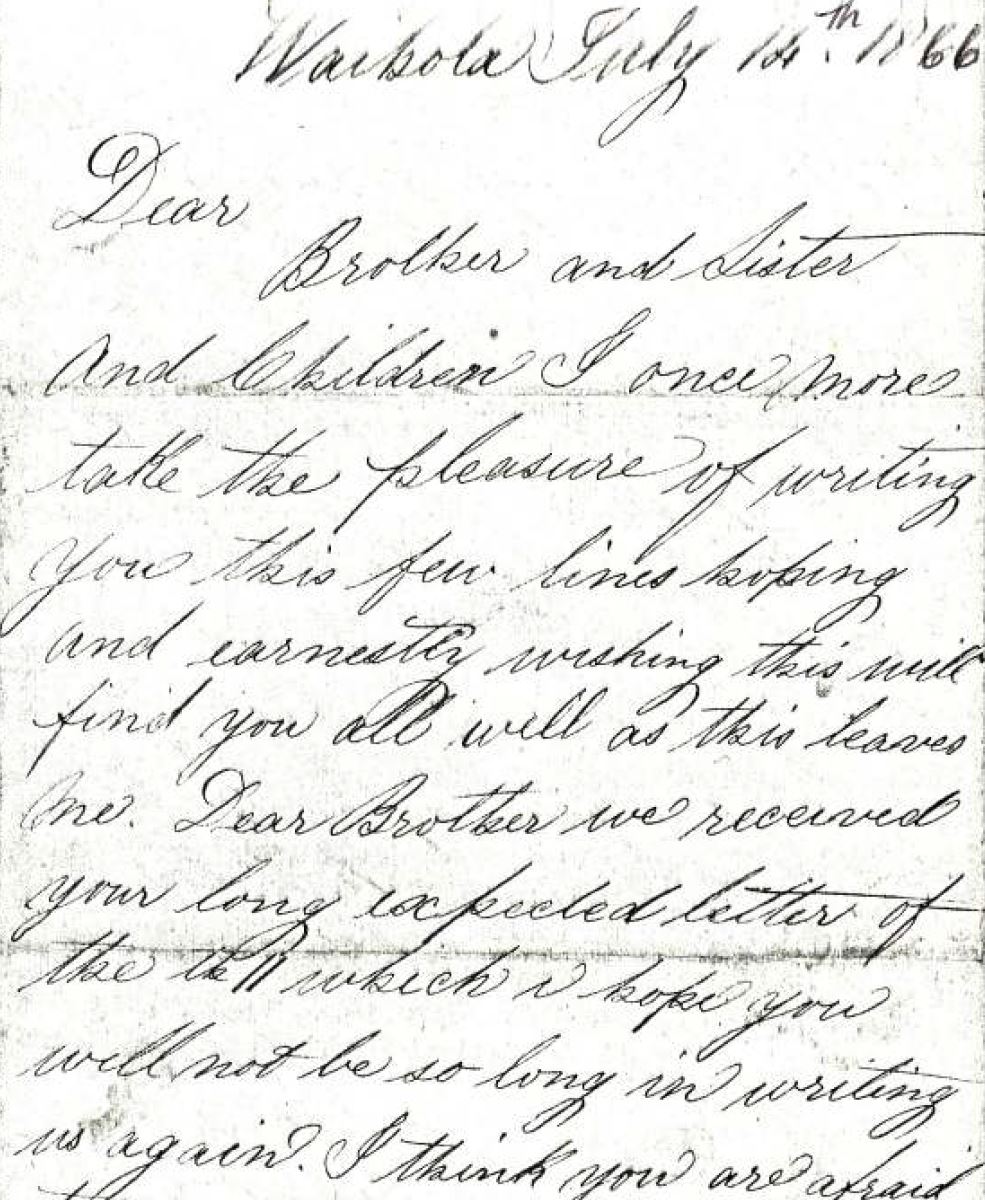 Waikola July 14th. 1866
Dear
Brother and Sister
And Children I once more
take the pleasure of writing
you this few lines hoping
and earnestly wishing this will
find you all well as this leaves
me. Dear Brother we received
your long expected letter of
the which i hope you
will not be so long in writing
us again. I think you are afraid